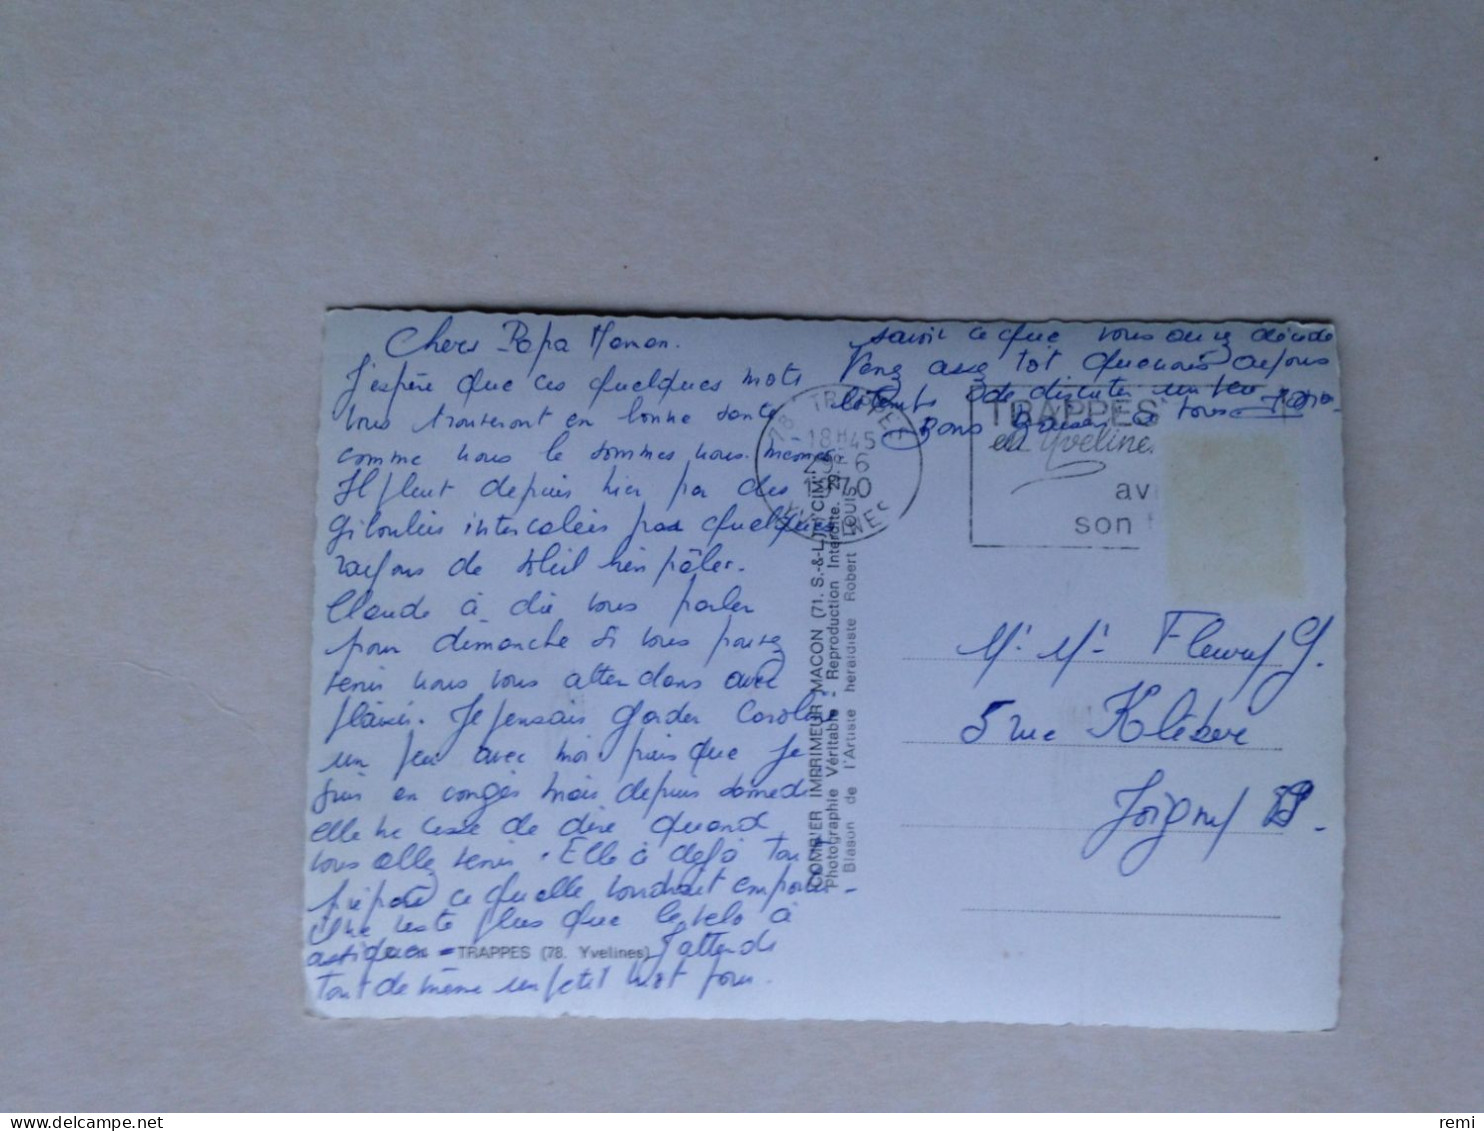 Chers Papa Maman.
J'espère que ces quelques mots
vous trouveront en bonne santé
comme nous le sommes nous-mêmes
Il pleut depuis hier par des
giboulées intercalées par quelques
rayons de soleil bien pâles.
Claude à dû vous parler
pour dimanche si vous pouvez
venir nous vous attendons avec
plaisir. Je pensais garder Caroline
un peu avec moi puis que je
suis en congés mais depuis samedi
elle ne cesse de dire quand
vous allez venir. Elle à déjà tout
préparé ce quelle voudrait emporter
Il ne reste plus que le vélo à
astiquer - J'attends
tout de même un petit mot pour
savoir ce que vous avez décidé
Venez assez tot que nous ayons
le temps de discuter un peu
Bons Baisers à tous
78 TRAPPES
18H45
29-6
1970
YVELINES
TRAPPES
en Yvelines
av
son
COMBIER IMPRIMEUR MACON (71. S.-&-L.) "CIM"
Photographie Véritable - Reproduction Interdite.
Blason de l'Artiste héraldiste Robert LOUIS
TRAPPES (78. Yvelines)
Mr Me Fleury G.
5 rue Kléber
Joigny 89.
remi
Delcampe.net